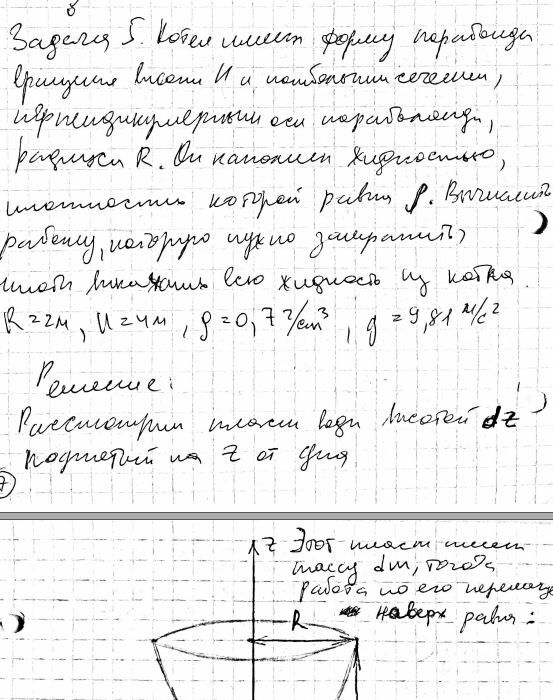 Задача 5. Котел имеет форму параболоида
вращения высоты H и наибольшим сечением,
перпендикулярным оси параболоида,
радиуса R. Он наполнен жидкостью,
плотность которой равна ρ. Вычислить
работу, которую нужно затратить,
чтобы выкачать всю жидкость из котла.
R=2м, H=4м, ρ=0,7 г/cm³, g=9,81 м/c²
Решение:
Рассмотрим пласт воды высотой dz
поднятый на z от дна
7
z Этот пласт имеет
массу dm, тогда
работа по его перемеще
наверх равна:
R